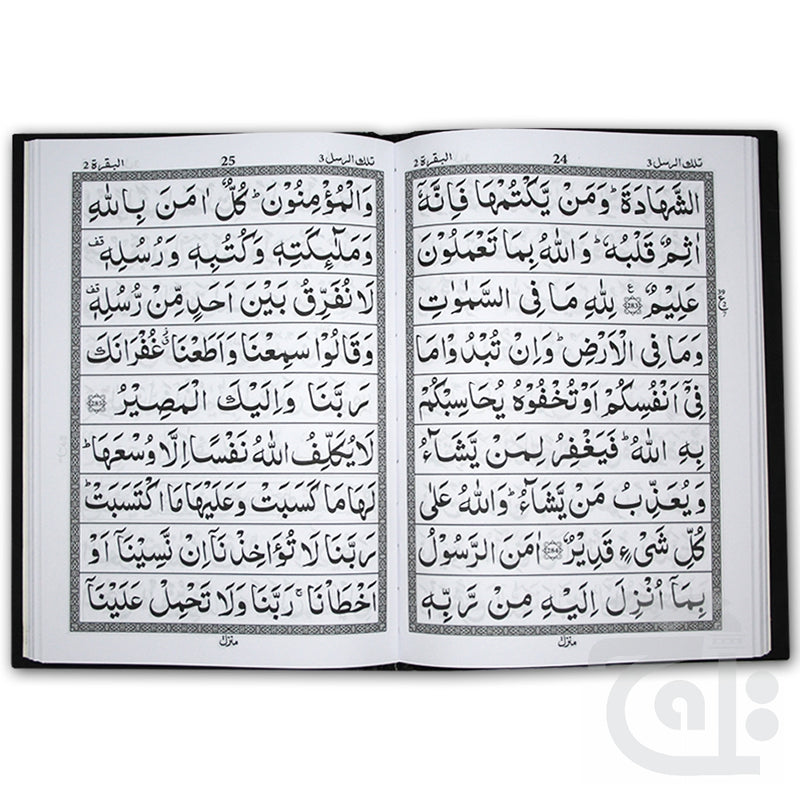 تلك الرسل ٣ 24 البقرة ٢
الشَّهَادَةَ ؕ وَمَنْ يَّكْتُمْهَا فَاِنَّهٗۤ
اٰثِمٌ قَلْبُهٗ ؕ وَاللّٰهُ بِمَا تَعْمَلُوْنَ
عَلِيْمٌ ۧ 283 لِلّٰهِ مَا فِی السَّمٰوٰتِ
وَمَا فِی الْاَرْضِ ؕ وَاِنْ تُبْدُوْا مَا
فِیْۤ اَنْفُسِكُمْ اَوْ تُخْفُوْهُ يُحَاسِبْكُمْ
بِهِ اللّٰهُ ؕ فَيَغْفِرُ لِمَنْ يَّشَآءُ
وَيُعَذِّبُ مَنْ يَّشَآءُ ؕ وَاللّٰهُ عَلٰی
كُلِّ شَیْءٍ قَدِيْرٌ 284 اٰمَنَ الرَّسُوْلُ
بِمَاۤ اُنْزِلَ اِلَيْهِ مِنْ رَّبِّهٖ
منزل
تلك الرسل ٣ 25 البقرة ٢
وَالْمُؤْمِنُوْنَ ؕ كُلٌّ اٰمَنَ بِاللّٰهِ
وَمَلٰٓئِكَتِهٖ وَكُتُبِهٖ وَرُسُلِهٖ قف
لَا نُفَرِّقُ بَيْنَ اَحَدٍ مِّنْ رُّسُلِهٖ قف
وَقَالُوْا سَمِعْنَا وَاَطَعْنَا غُفْرَانَكَ
رَبَّنَا وَاِلَيْكَ الْمَصِيْرُ 285
لَا يُكَلِّفُ اللّٰهُ نَفْسًا اِلَّا وُسْعَهَا ؕ
لَهَا مَا كَسَبَتْ وَعَلَيْهَا مَا اكْتَسَبَتْ ؕ
رَبَّنَا لَا تُؤَاخِذْنَاۤ اِنْ نَّسِيْنَاۤ اَوْ
اَخْطَاْنَا ۚ رَبَّنَا وَلَا تَحْمِلْ عَلَيْنَاۤ
منزل